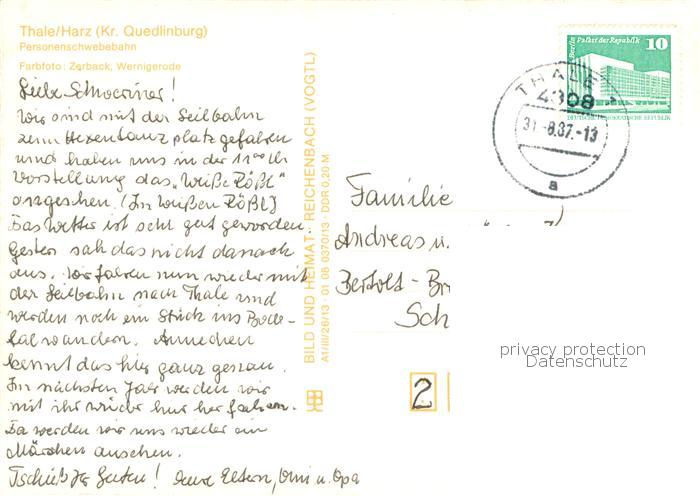 Thale/Harz (Kr. Quedlinburg)
Personenschwebebahn
Farbfoto: Zerback, Wernigerode
Liebe Schweriner!
Wir sind mit der Seilbahn
zum Hexentanzplatz gefahren
und haben uns in der 11⁰⁰ Uhr
Vorstellung das „Weiße Rößl"
angesehen. (Im Weißen Rößl)
Das Wetter ist sehr gut geworden.
Gestern sah das nicht danach
aus. Wir fahren nun wieder mit
der Seilbahn nach Thale und
werden noch ein Stück ins Bode-
tal wandern. Annechen
kennt das hier ganz genau.
Im nächsten Jahr werden wir
mit ihr wieder hier her fahren.
Da werden wir uns wieder ein
Märchen ansehen.
Tschüß Ihr Guten! Eure Eltern, Omi u. Opa
BILD UND HEIMAT REICHENBACH (VOGTL)
A1/III/26/13 01 08 0370/13 DDR 0,20 M
Berlin Palast der Republik 10
DEUTSCHE DEMOKRATISCHE REPUBLIK
THALE 1
4308
31.-8.87.-13
a
Familie
Andreas u.
Bertolt-Br
Sch
2
privacy protection
Datenschutz